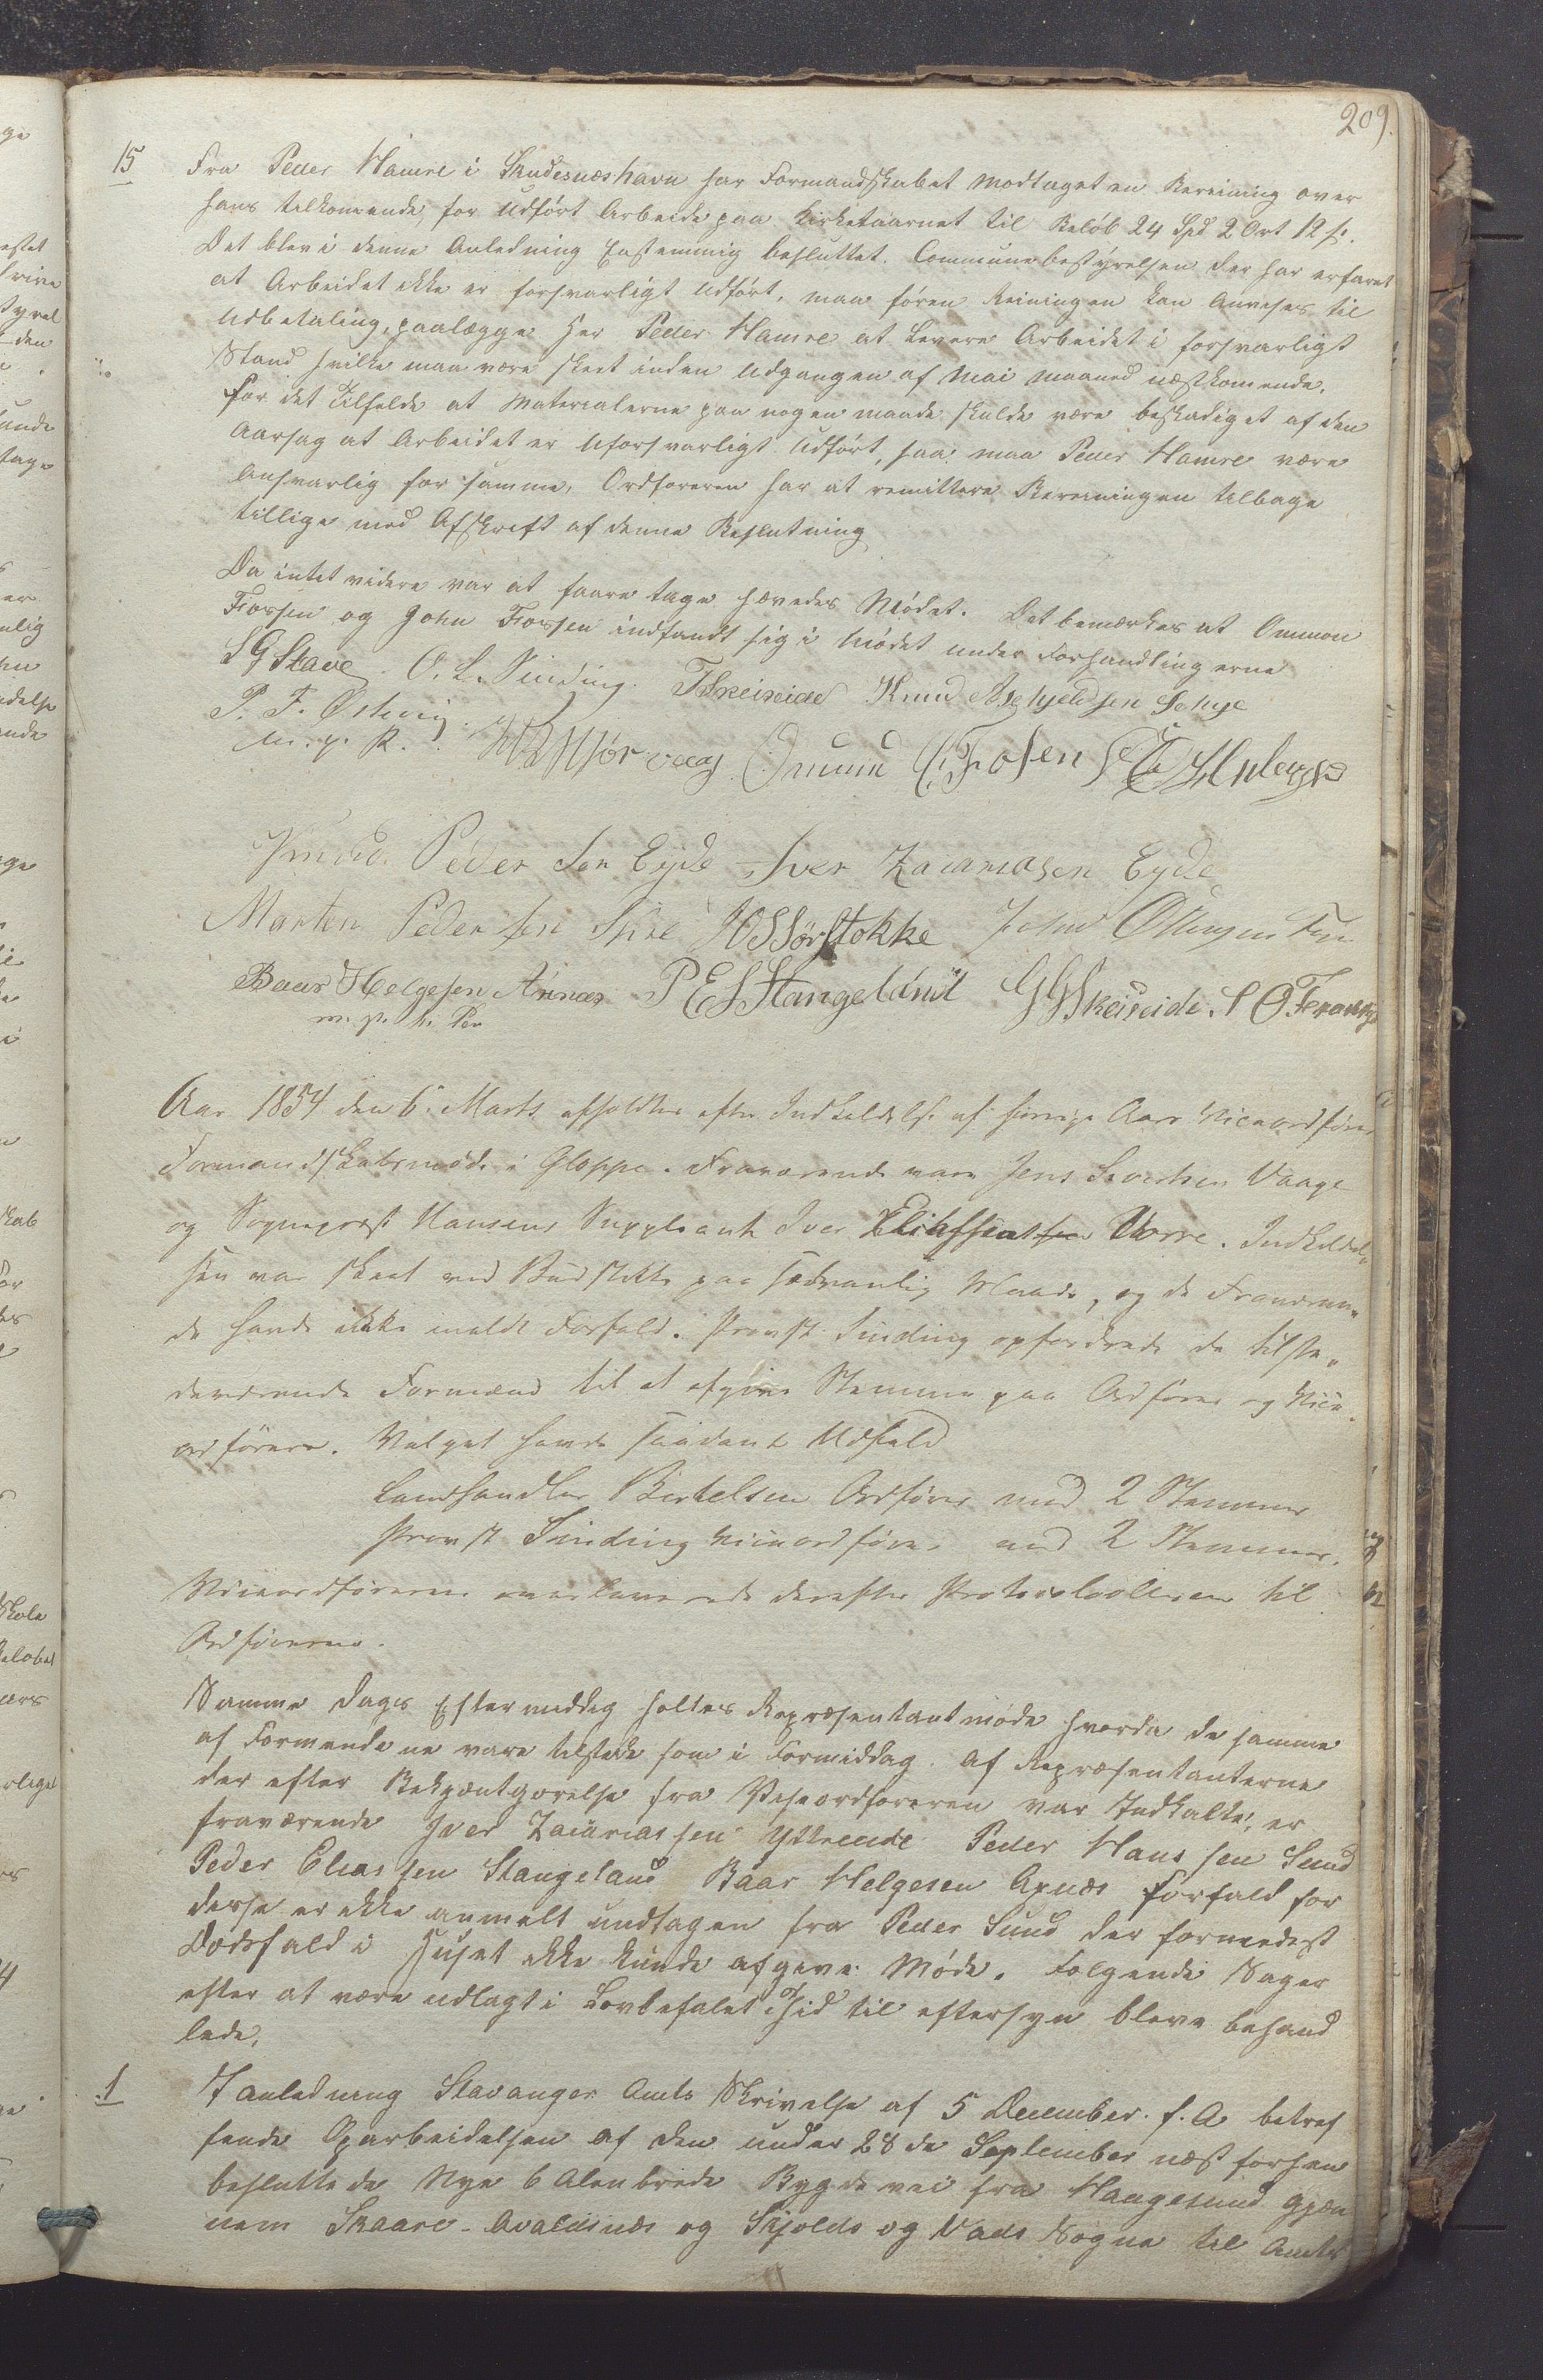 209.
15 Fra Peder Hamre i Skudesnæshavn har Formandskabet modtaget en Regning over
hans tilkomende, for udført Arbeide paa Kirketaarnet til Beløb 24 Spd 2 Ort 12 s.
Det blev i denne Anledning Enstemmig besluttet. Communebestyrelsen der har erfaret
at Arbeidet ikke er forsvarligt udført, maa føren Reiningen kan anvises til
Udbetaling, paalægge Her Peder Hamre at Levere Arbeidet i forsvarligt
Stand hvilke maa være skeet inden Udgangen af Mai maaned næstkomende.
For det Tilfelde at Materialerne paa nogen maade skulde være beskadiget af den
Aarsag at Arbeidet er Uforsvarligt Udført, saa maa Peder Hamre være
Ansvarlig for samme, Ordføreren har at remittere Rereiningen tilbage
tillige med Afskrift af denne Beslutning
Da intet videre var at faare tage hævedes Mødet. Det bemærkes at Ommon
Fossen og John Fossen indfandt sig i Mødet under Forhandlingerne
S G Stave O. L. Sinding T Skeiseide Knud Aschjeldsen Sehge
P. F. Østevig
m. p. P.
Omund C Fosen
Knud Peder Sen Eyde Iver Zacariasen Eyde
Marten Pedersen John Ottesen
Baar Helgesen Aknæs P E S Stangeland G G Skeiseide.
m. p. h. Pen
Aar 1854 den 6. Marts afholdtes efter Indkaldelse af forrige Aars Viceordfører
Formandskabsmøde i Gloppe. Fraværende vare Jens Sivertsen Vaage
og Sognepræst Hansens Suppleant Iver Eliassen Vorre. Indkaldel-
sen var skeet ved Budstikke paa sædvanlig Maade, og de Fraværen-
de havde ikke meldt Forfald. Provst Sinding opfordrede de tilste-
deværende Formænd til at afgive Stemme paa Ordfører og Vice-
ordfører. Valget havde saadant Udfald
Landhandler Bertelsen Ordfører med 2 Stemmer
Provst Sinding Viceordfører med 2 Stemmer.
Viceordføreren overleverede derefter Protokollen til
Ordføreren.
Samme Dags Eftermiddag holtes Repræsentantmøde hvorda de samme
af Formændene vare tilstede som i Formiddag. Af Repræsentanterne
der efter Bekjæntgørelse fra Viseordføreren var Indkalte, er
fraværende Iver Zacariassen Yttreeide Peder Hanssen Sund
Peder Eliassen Stangeland Baar Helgesen Aknæs Forfald for
derse er ikke anmelt undtagen fra Peder Sund der formedest
Dødsfald i Huset ikke kunde afgive Møde. Følgende Sager
efter at være udlagt i Lovbefalet Tid til eftersyn bleve behand
lede.
1 I anledning Stavanger Amts Skrivelse af 5 December f. A. betref
fende Oparbeidelsen af den under 28de September næst forhen
besluttede Nye 6 Alen brede Bygdevei fra Haugesund gjæn
nem Skaare - Avaldsnæs og Skjolds og Vads Sogne til Amts